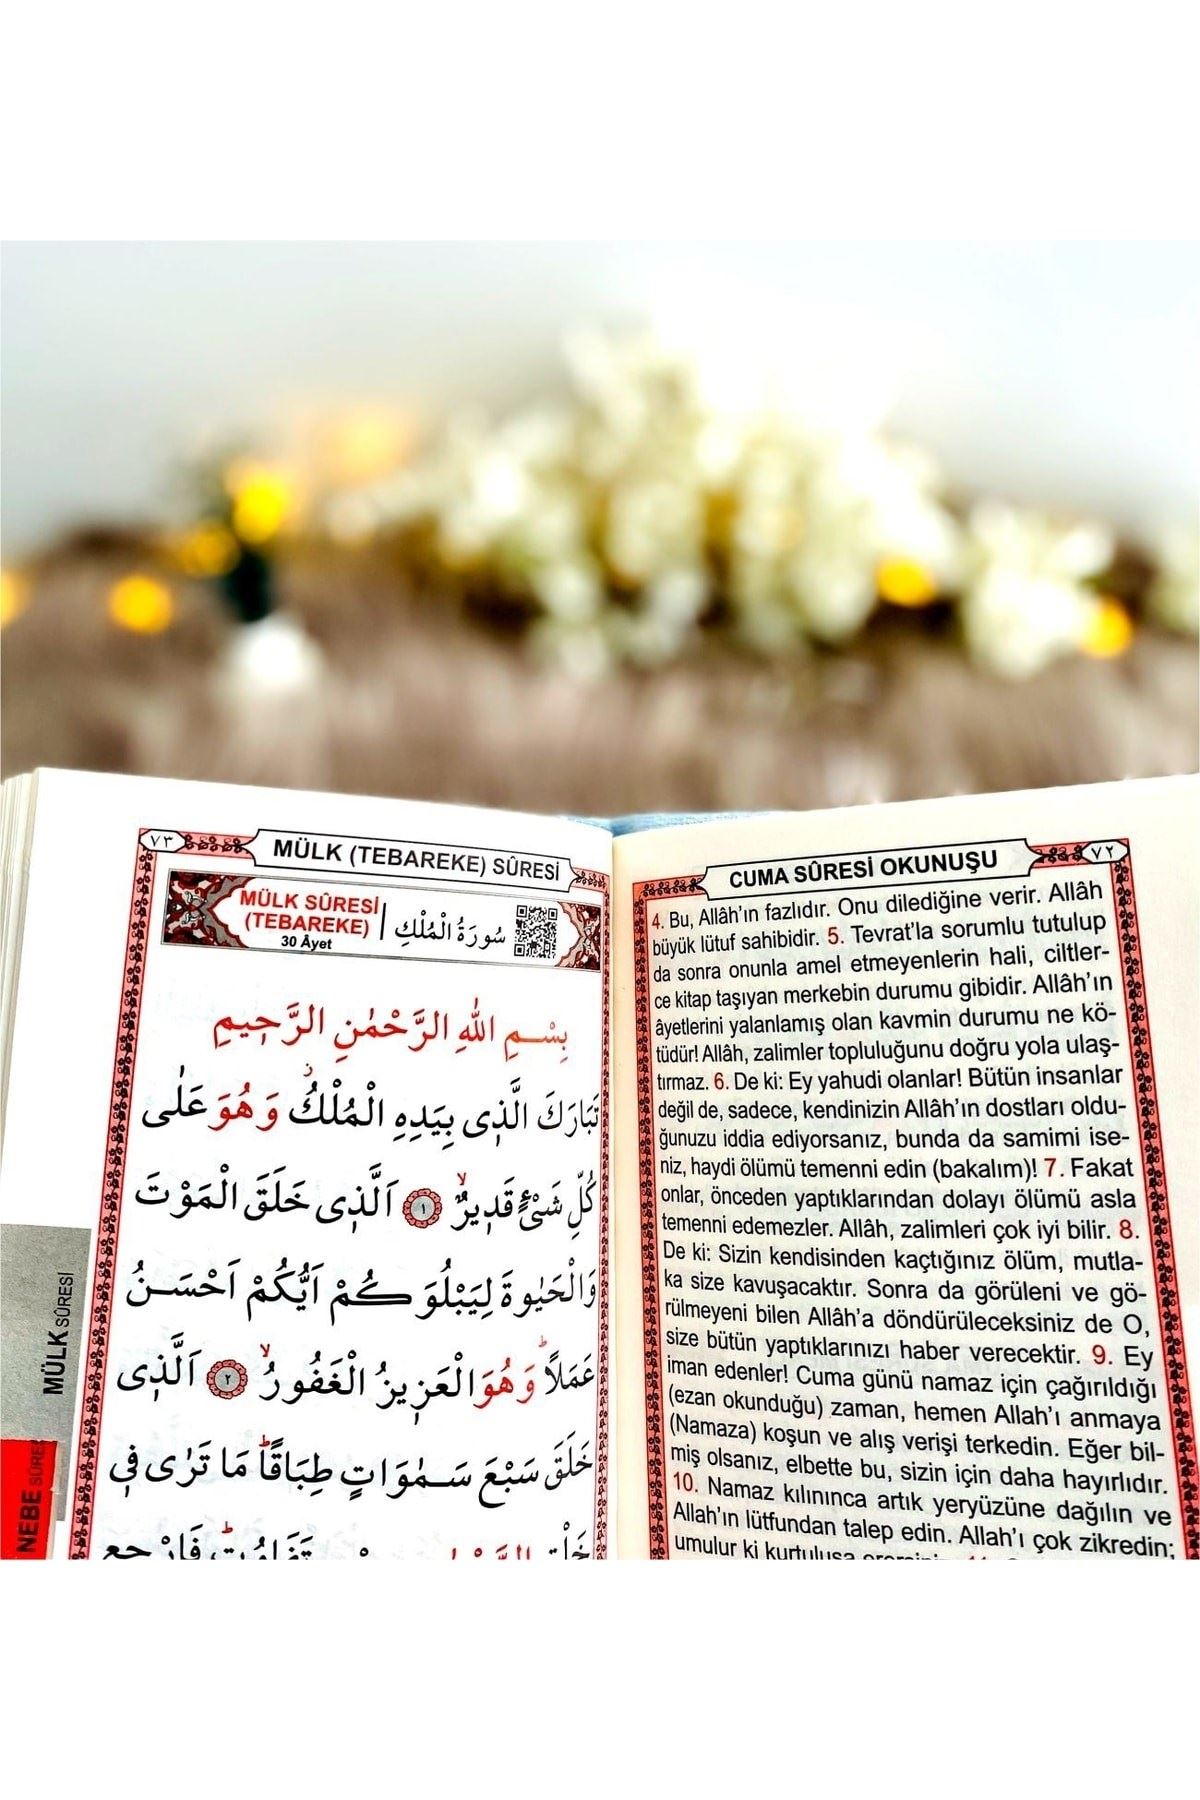 ٧٢
CUMA SÛRESİ OKUNUŞU
4. Bu, Allâh'ın fazlıdır. Onu dilediğine verir. Allâh
büyük lütuf sahibidir. 5. Tevrat'la sorumlu tutulup
da sonra onunla amel etmeyenlerin hali, ciltler-
ce kitap taşıyan merkebin durumu gibidir. Allâh'ın
âyetlerini yalanlamış olan kavmin durumu ne kö-
tüdür! Allâh, zalimler topluluğunu doğru yola ulaş-
tırmaz. 6. De ki: Ey yahudi olanlar! Bütün insanlar
değil de, sadece, kendinizin Allâh'ın dostları oldu-
ğunuzu iddia ediyorsanız, bunda da samimi ise-
niz, haydi ölümü temenni edin (bakalım)! 7. Fakat
onlar, önceden yaptıklarından dolayı ölümü asla
temenni edemezler. Allâh, zalimleri çok iyi bilir. 8.
De ki: Sizin kendisinden kaçtığınız ölüm, mutla-
ka size kavuşacaktır. Sonra da görüleni ve gö-
rülmeyeni bilen Allâh'a döndürüleceksiniz de O,
size bütün yaptıklarınızı haber verecektir. 9. Ey
iman edenler! Cuma günü namaz için çağırıldığı
(ezan okunduğu) zaman, hemen Allah'ı anmaya
(Namaza) koşun ve alış verişi terkedin. Eğer bil-
miş olsanız, elbette bu, sizin için daha hayırlıdır.
10. Namaz kılınınca artık yeryüzüne dağılın ve
Allah'ın lütfundan talep edin. Allah'ı çok zikredin;
umulur ki kurtuluşa
٧٣
MÜLK (TEBAREKE) SÛRESİ
MÜLK SÛRESİ
(TEBAREKE)
30 Âyet
سُورَةُ الْمُلْكِ
بِسْمِ اللهِ الرَّحْمٰنِ الرَّحِيمِ
تَبَارَكَ الَّذِى بِيَدِهِ الْمُلْكُۘ وَهُوَ عَلٰى
كُلِّ شَىْءٍ قَدِيرٌۙ ١ اَلَّذِى خَلَقَ الْمَوْتَ
وَالْحَيٰوةَ لِيَبْلُوَكُمْ اَيُّكُمْ اَحْسَنُ
عَمَلاًؕ وَهُوَ الْعَزِيزُ الْغَفُورُۙ ٢ اَلَّذِى
خَلَقَ سَبْعَ سَمٰوَاتٍ طِبَاقًاؕ مَا تَرٰى فِى
MÜLK SÛRESİ
NEBE SÛRESİ